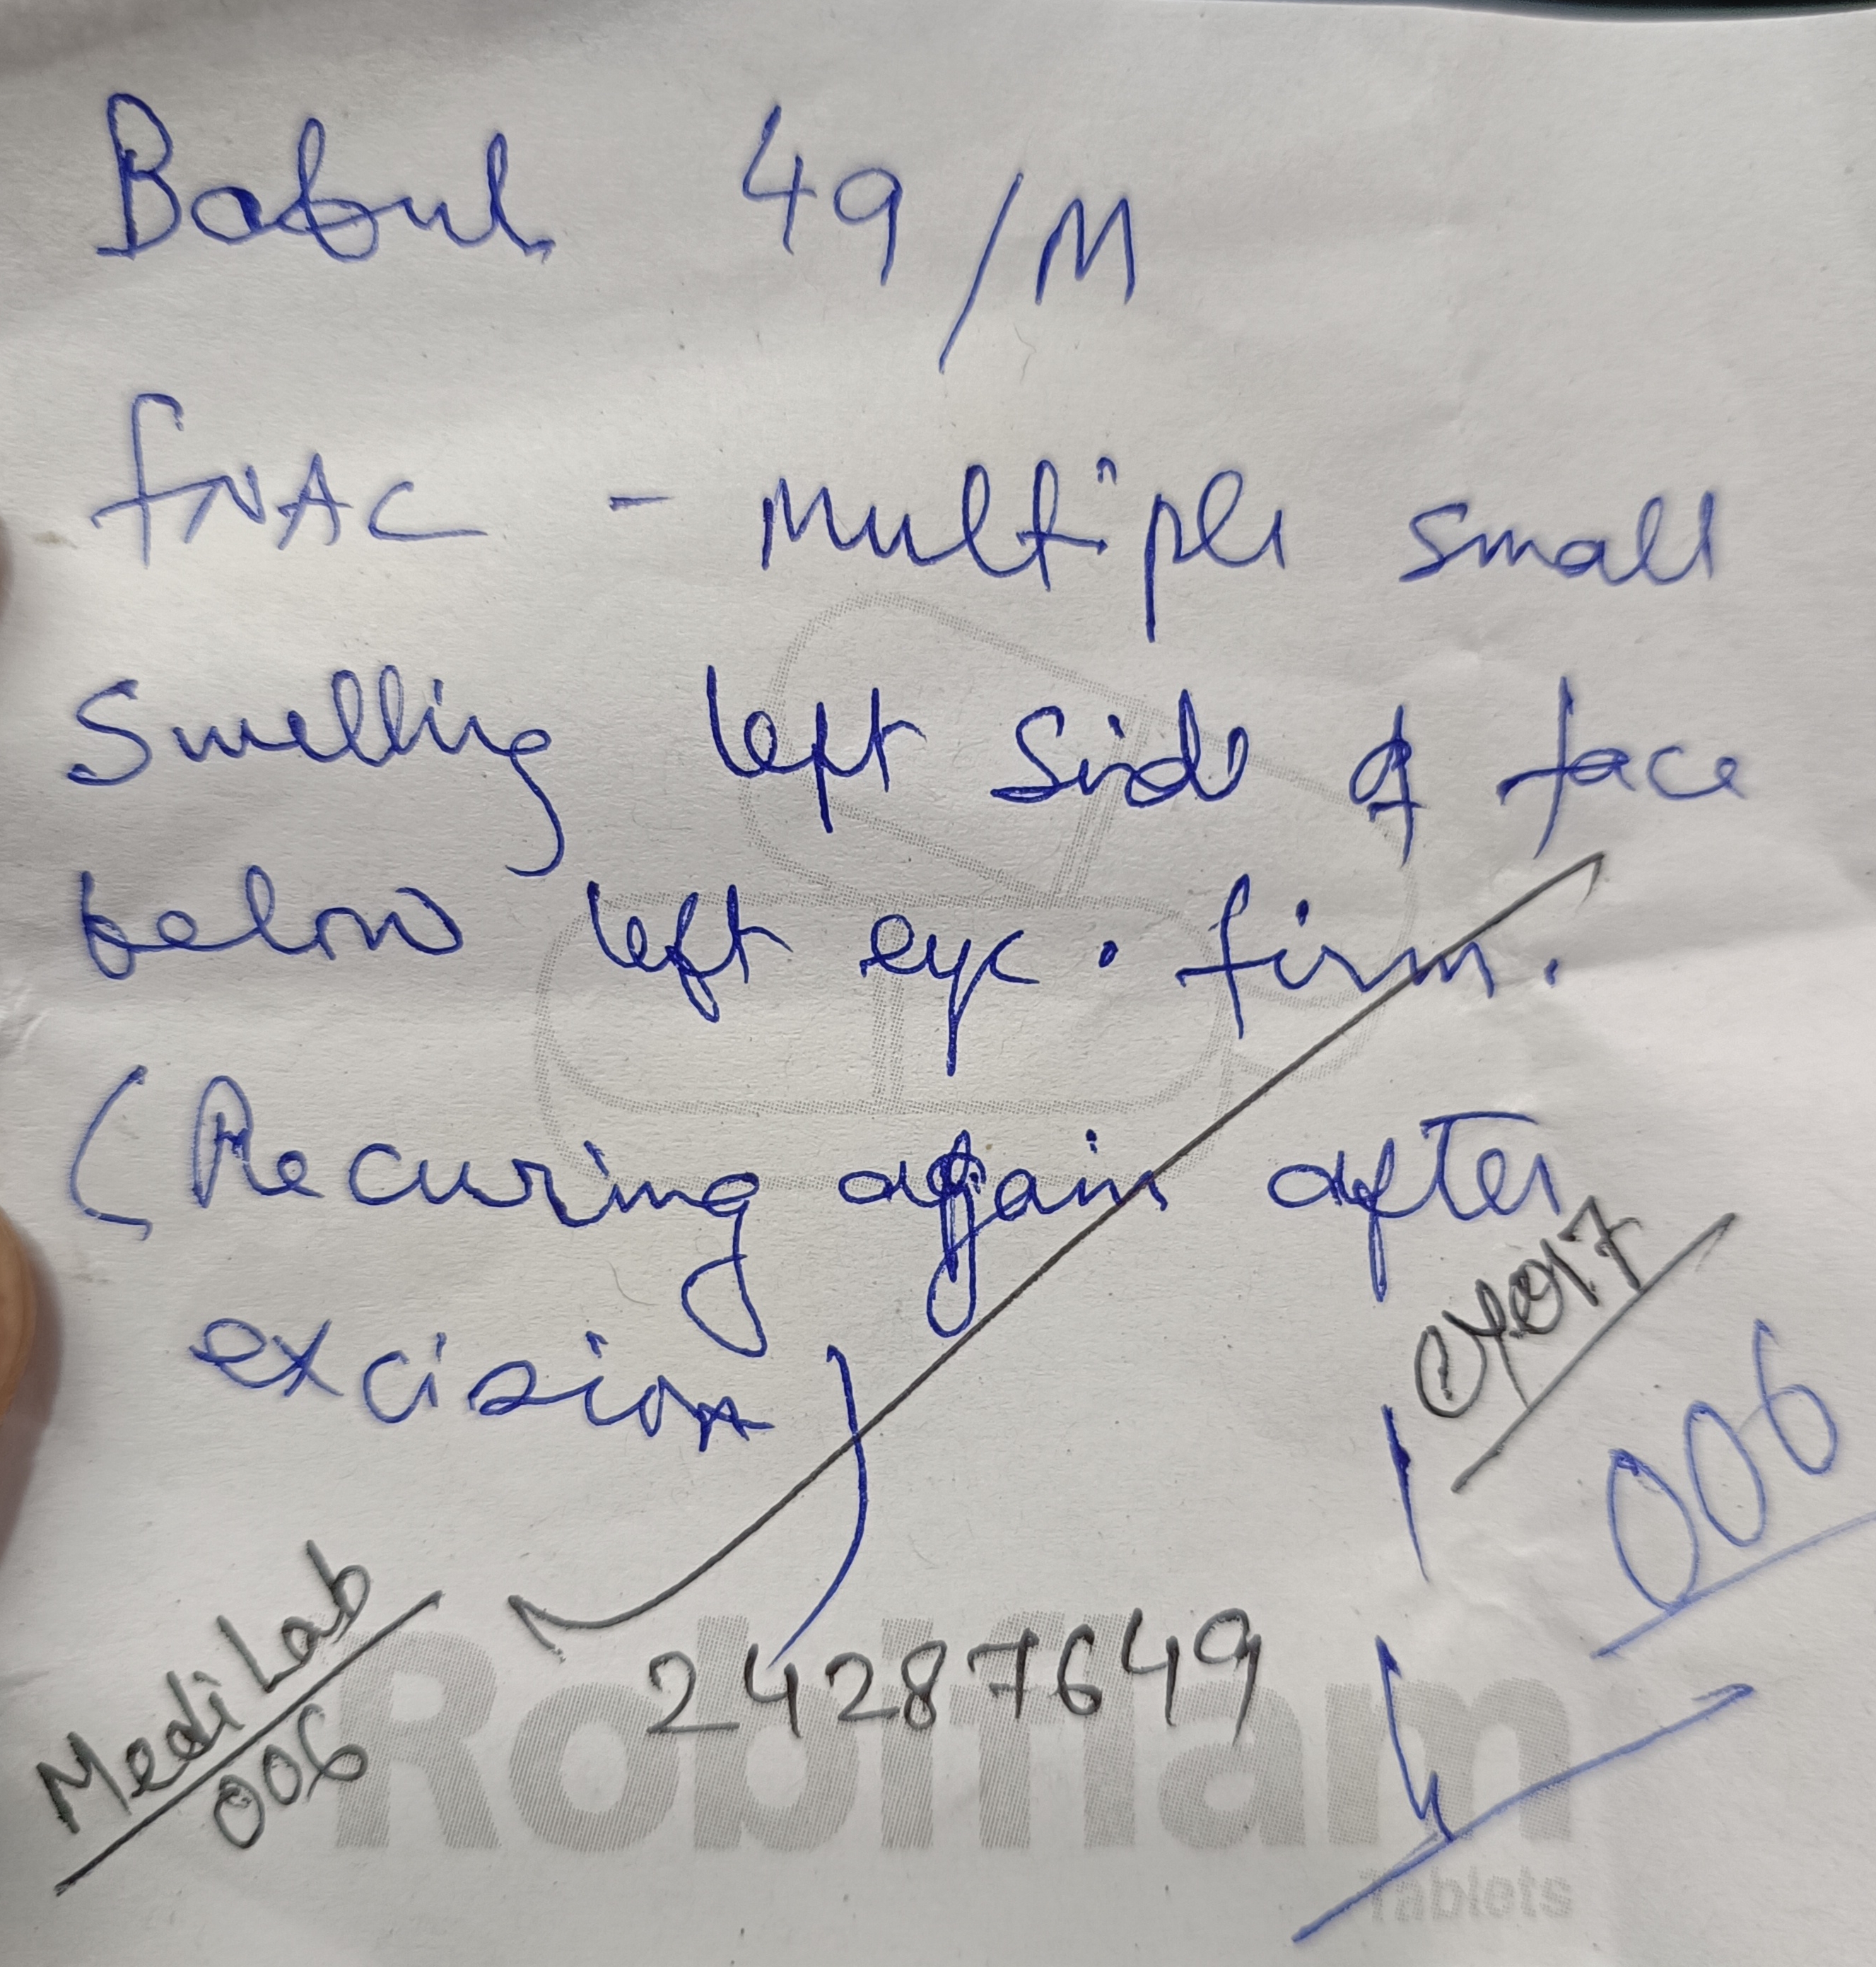 Babul 49/M
FNAC - Multiple small
Swelling left side of face
below left eye. firm.
(Recuring again after
excision)
Cyto17
006
Medi Lab
006
24287649
Robiflam
Tablets